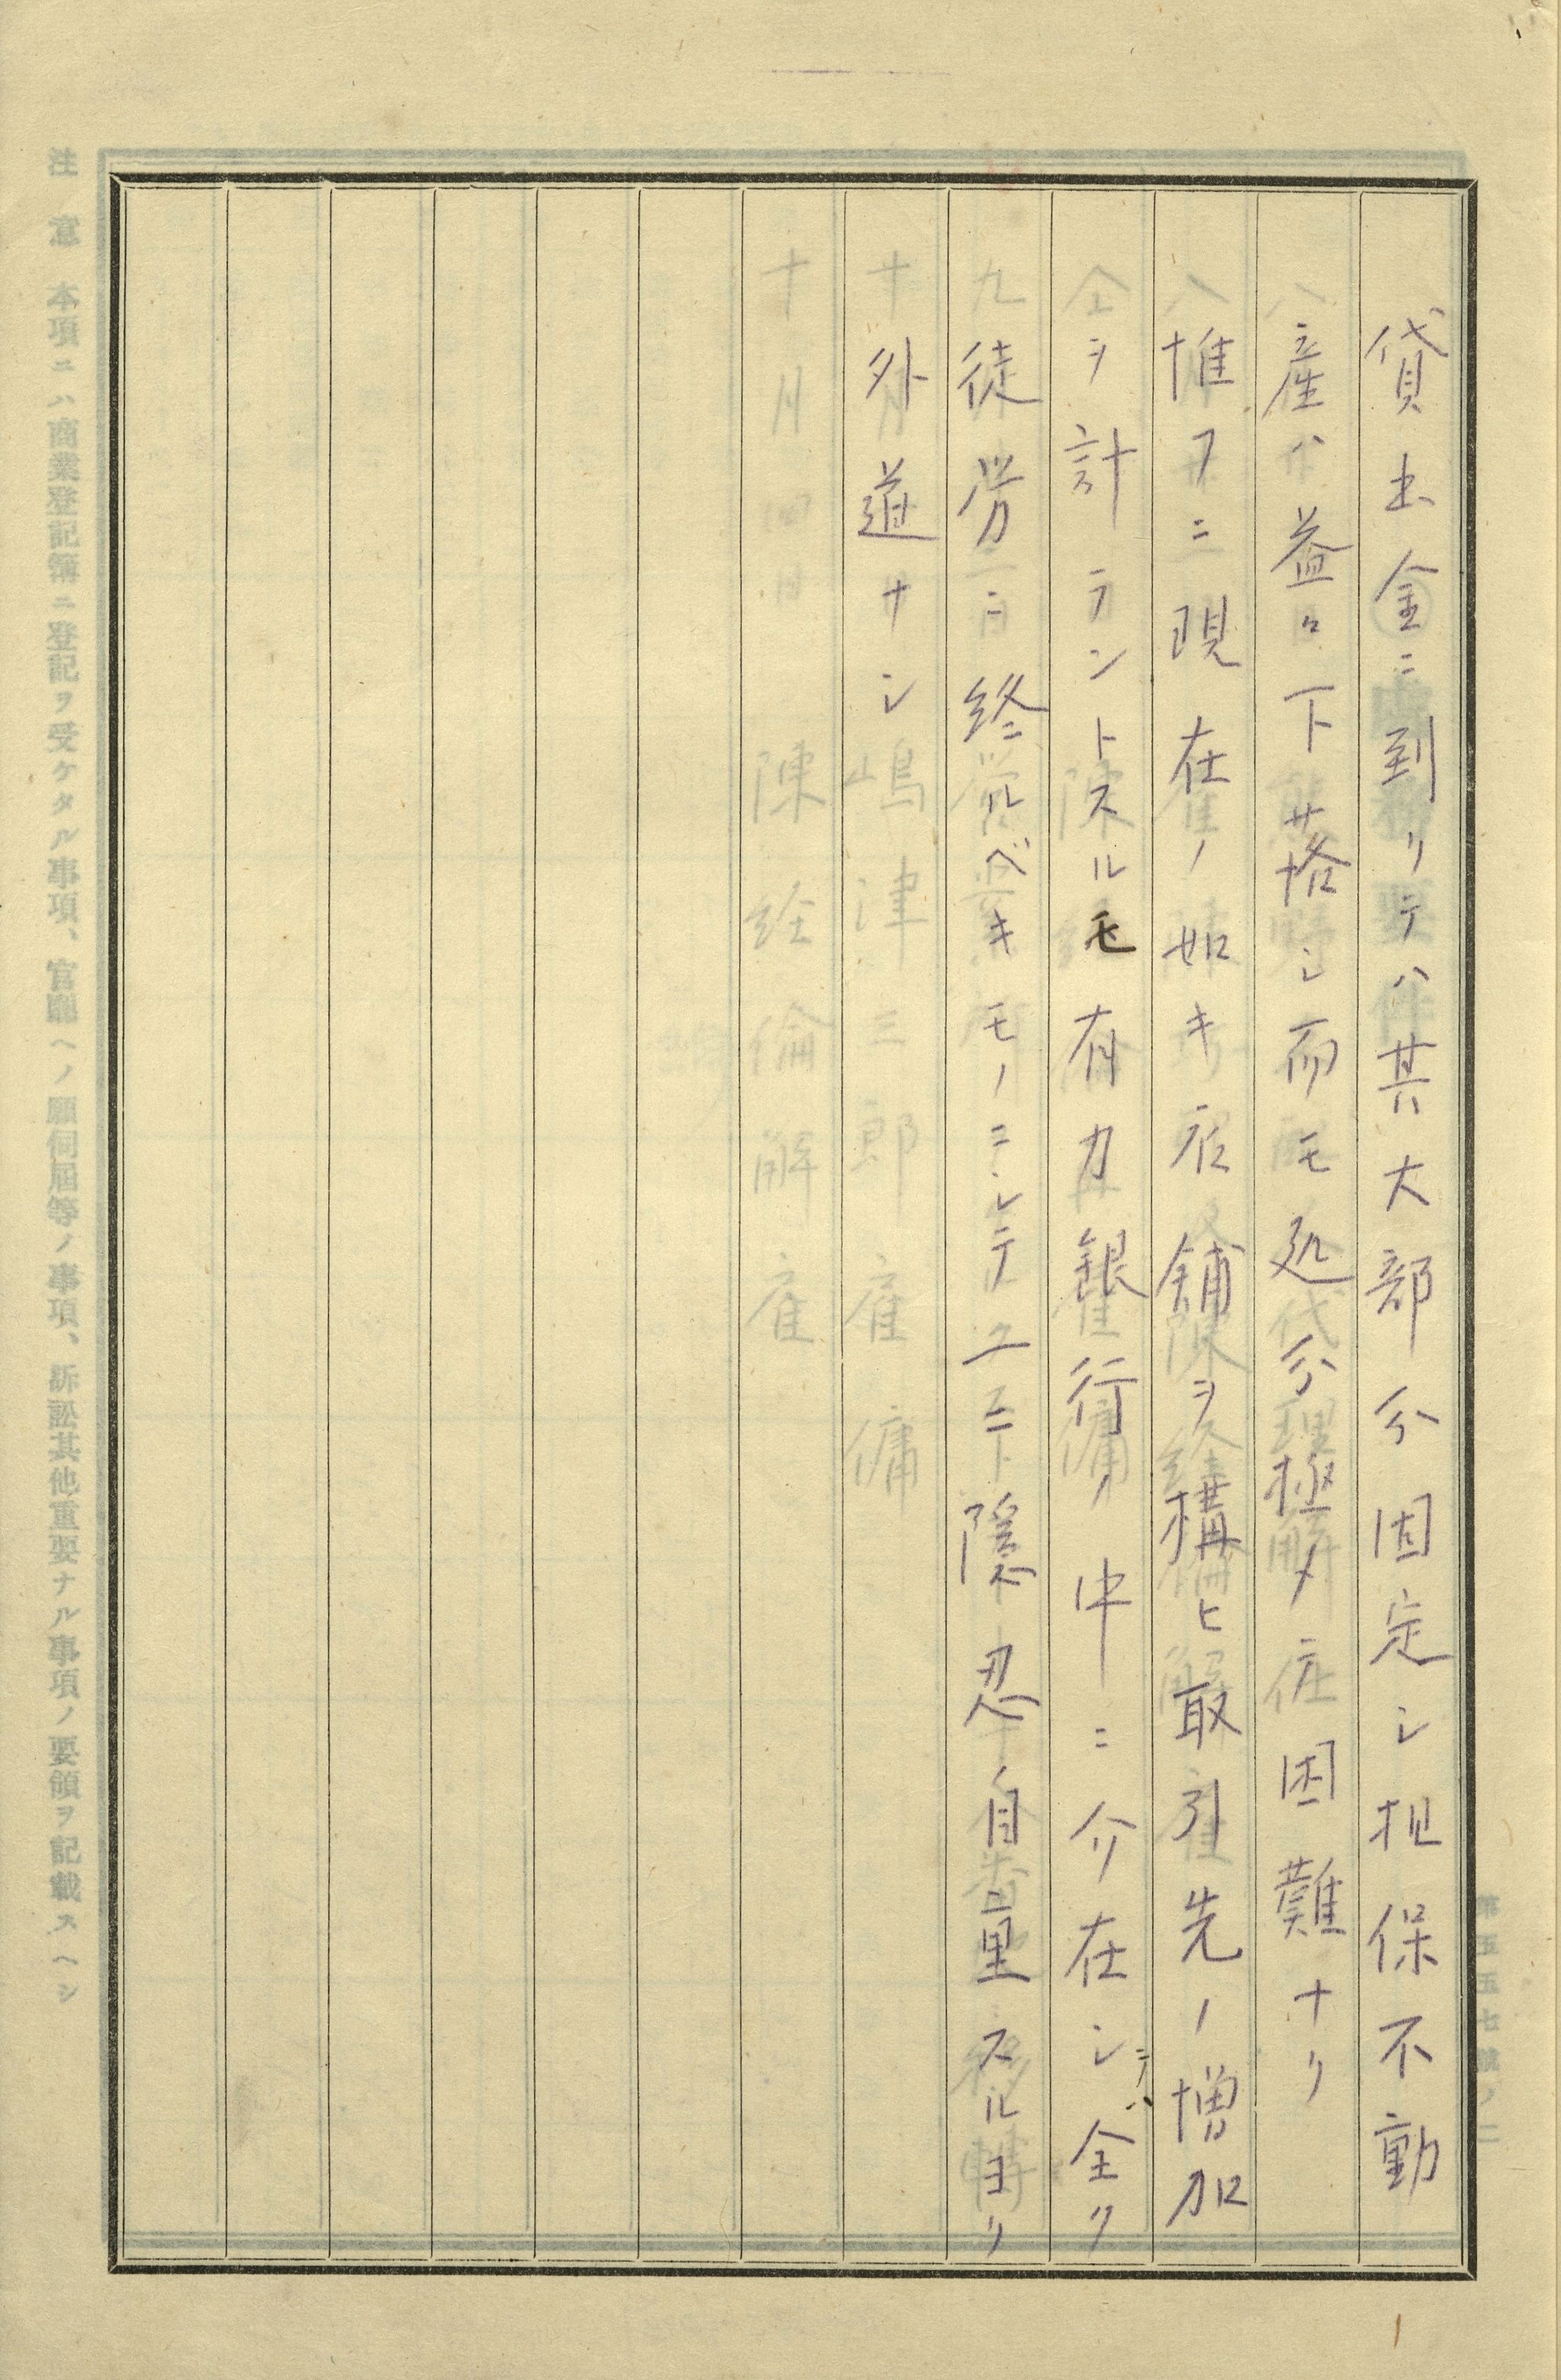 貸出金ニ到リテハ其大部分固定シ担保不動
産ハ益々下落シ而モ処分極メテ困難ナリ
惟フニ現在ノ如キ店舗ヲ構ヒ取引先ノ増加
ヲ計ラントスルモ有力銀行ノ中ニ介在シテハ全ク
徒労ニ終ルベキモノニシテ 隠忍自重スルヨリ
外道ナシ
注意 本項ニハ商業登記簿ニ登記ヲ受ケタル事項、官廳ヘノ願伺屆等ノ事項、訴訟其他重要ナル事項ノ要領ヲ記載スヘシ